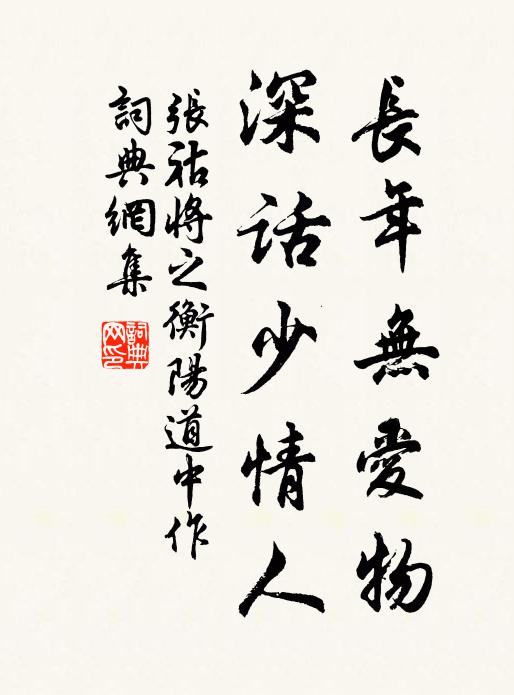 長年無愛物
深话少情人
張祜將之衡陽道中作
詞典網集
詞典網印